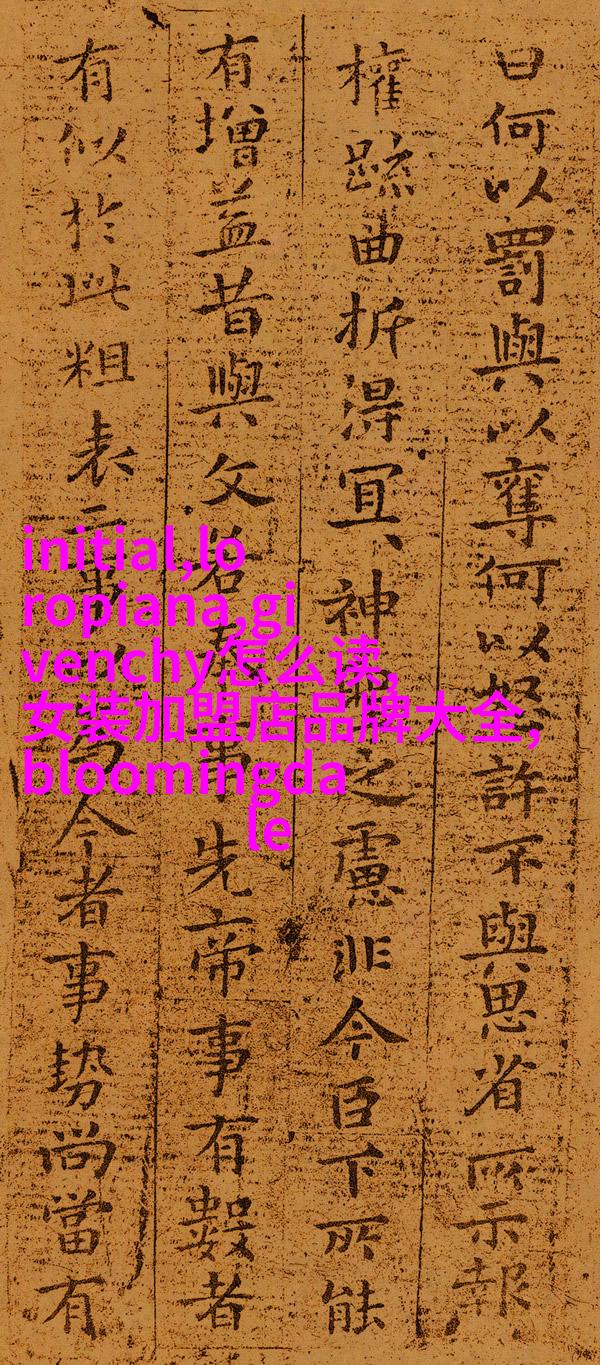 曰何以罰與以奪何以怒許不與思省所示報
權踈曲折得冝神之慮非今臣下所能
有增益昔與文若事先帝事有數者
有似於此粗表二事以為今者事勢尚當有
initial,lo
ropiana,gi
venchy怎么读,
女装加盟店品牌大全,
bloomingda
le